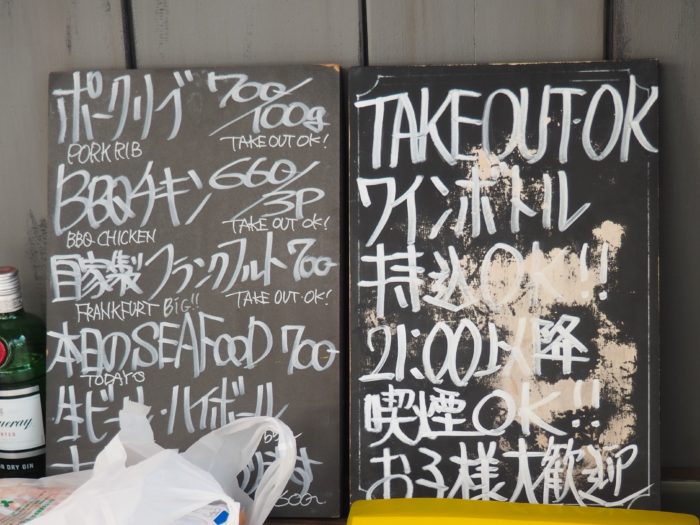 ポークリブ 700/100g
PORK RIB TAKE OUT OK!
BBQチキン 660/3P
BBQ CHICKEN TAKE OUT OK!
自家製フランクフルト 700
FRANKFURT BIG!! TAKE OUT・OK!
本日のSEAFOOD 700
TODAY'S
生ビール・ハイボール
500
TAKE OUT・OK
ワインボトル
持込OK!!
21:00以降
喫煙OK!!
お子様大歓迎
DRY GIN